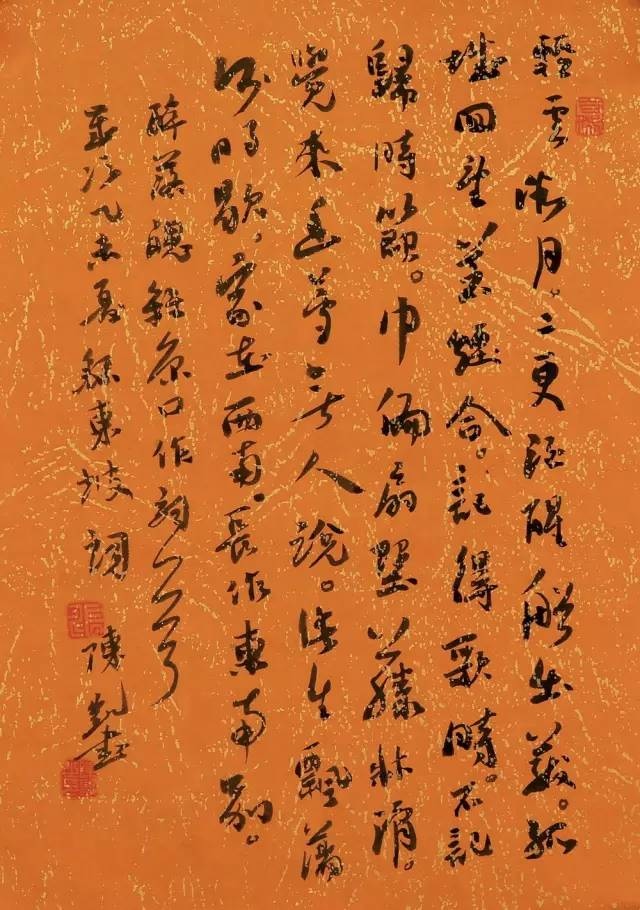 輕雲微月。二更酒醒船出發。孤
城回望蒼煙合。記得歌時。不記
歸時節。巾偏扇墜藤牀滑。
覺來幽夢無人說。此生飄蕩
何時歇，家在西南。長作東南別。
醉落魄離京口作
歲次乙未夏錄東坡詞 陳書